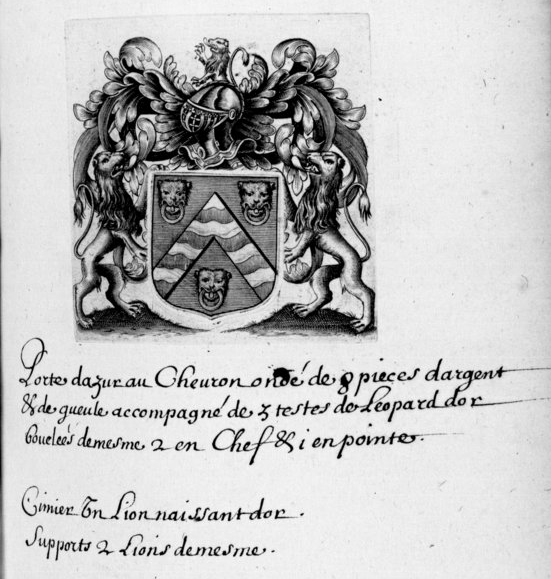 Porte dazur au Cheuron ondé de 8 pieces dargent
& de gueule accompagné de 3 testes de Leopard dor
bouclées de mesme 2 en Chef & i en pointe.
Cimier Vn Lion naissant dor.
Supports 2 Lions de mesme.